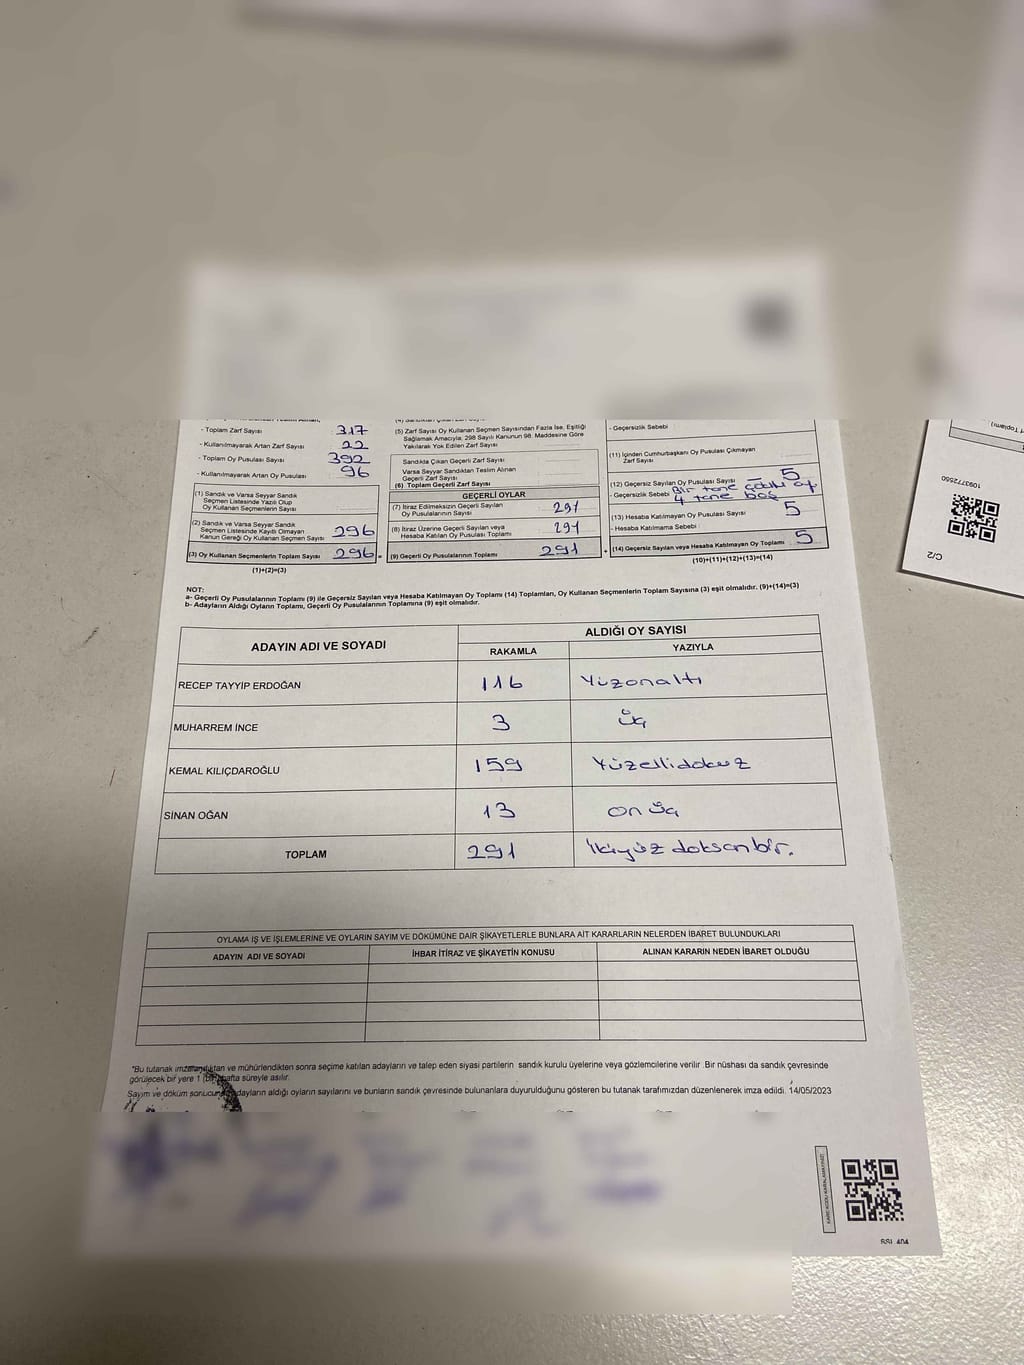 - Toplam Zarf Sayısı 317
- Kullanılmayarak Artan Zarf Sayısı 22
- Toplam Oy Pusulası Sayısı 392
- Kullanılmayarak Artan Oy Pusulası 96
(1) Sandık ve Varsa Seyyar Sandık
Seçmen Listesinde Yazılı Olup
Oy Kullanan Seçmenlerin Sayısı
(2) Sandık ve Varsa Seyyar Sandık
Seçmen Listesinde Kayıtlı Olmayan
Kanun Gereği Oy Kullanan Seçmen Sayısı 296
(3) Oy Kullanan Seçmenlerin Toplam Sayısı 296 =
(1)+(2)=(3)
(5) Zarf Sayısı Oy Kullanan Seçmen Sayısından Fazla İse, Eşitliği
Sağlamak Amacıyla; 298 Sayılı Kanunun 98. Maddesine Göre
Yakılarak Yok Edilen Zarf Sayısı
Sandıkta Çıkan Geçerli Zarf Sayısı
Varsa Seyyar Sandıktan Teslim Alınan
Geçerli Zarf Sayısı
(6) Toplam Geçerli Zarf Sayısı
GEÇERLİ OYLAR
(7) İtiraz Edilmeksizin Geçerli Sayılan
Oy Pusulalarının Sayısı 291
(8) İtiraz Üzerine Geçerli Sayılan veya
Hesaba Katılan Oy Pusulası Toplamı 291
(9) Geçerli Oy Pusulalarının Toplamı 291 +
- Geçersizlik Sebebi
(11) İçinden Cumhurbaşkanı Oy Pusulası Çıkmayan
Zarf Sayısı
(12) Geçersiz Sayılan Oy Pusulası Sayısı 5
- Geçersizlik Sebebi Bir tane
4 tane boş
(13) Hesaba Katılmayan Oy Pusulası Sayısı 5
- Hesaba Katılmama Sebebi
(14) Geçersiz Sayılan veya Hesaba Katılmayan Oy Toplamı 5
(10)+(11)+(12)+(13)=(14)
NOT:
a- Geçerli Oy Pusulalarının Toplamı (9) ile Geçersiz Sayılan veya Hesaba Katılmayan Oy Toplamı (14) Toplamları, Oy Kullanan Seçmenlerin Toplam Sayısına (3) eşit olmalıdır. (9)+(14)=(3)
b- Adayların Aldığı Oyların Toplamı, Geçerli Oy Pusulalarının Toplamına (9) eşit olmalıdır.
ADAYIN ADI VE SOYADI
ALDIĞI OY SAYISI
RAKAMLA YAZIYLA
RECEP TAYYIP ERDOĞAN 116 Yüzonaltı
MUHARREM İNCE 3 Üç
KEMAL KILIÇDAROĞLU 159 Yüzellidokuz
SİNAN OĞAN 13 on üç
TOPLAM 291 ikiyüz doksanbir.
OYLAMA İŞ VE İŞLEMLERİNE VE OYLARIN SAYIM VE DÖKÜMÜNE DAİR ŞİKAYETLERLE BUNLARA AİT KARARLARIN NELERDEN İBARET BULUNDUKLARI
ADAYIN ADI VE SOYADI İHBAR İTİRAZ VE ŞİKAYETİN KONUSU ALINAN KARARIN NEDEN İBARET OLDUĞU
"Bu tutanak imzalandıktan ve mühürlendikten sonra seçime katılan adayların ve talep eden siyasi partilerin sandık kurulu üyelerine veya gözlemcilerine verilir. Bir nüshası da sandık çevresinde
görülecek bir yere 1 (bir) hafta süreyle asılır.
Sayım ve döküm sonucunda adayların aldığı oyların sayılarını ve bunların sandık çevresinde bulunanlara duyurulduğunu gösteren bu tutanak tarafımızdan düzenlenerek imza edildi. 14/05/2023
SSI 404
1093772560
C/2